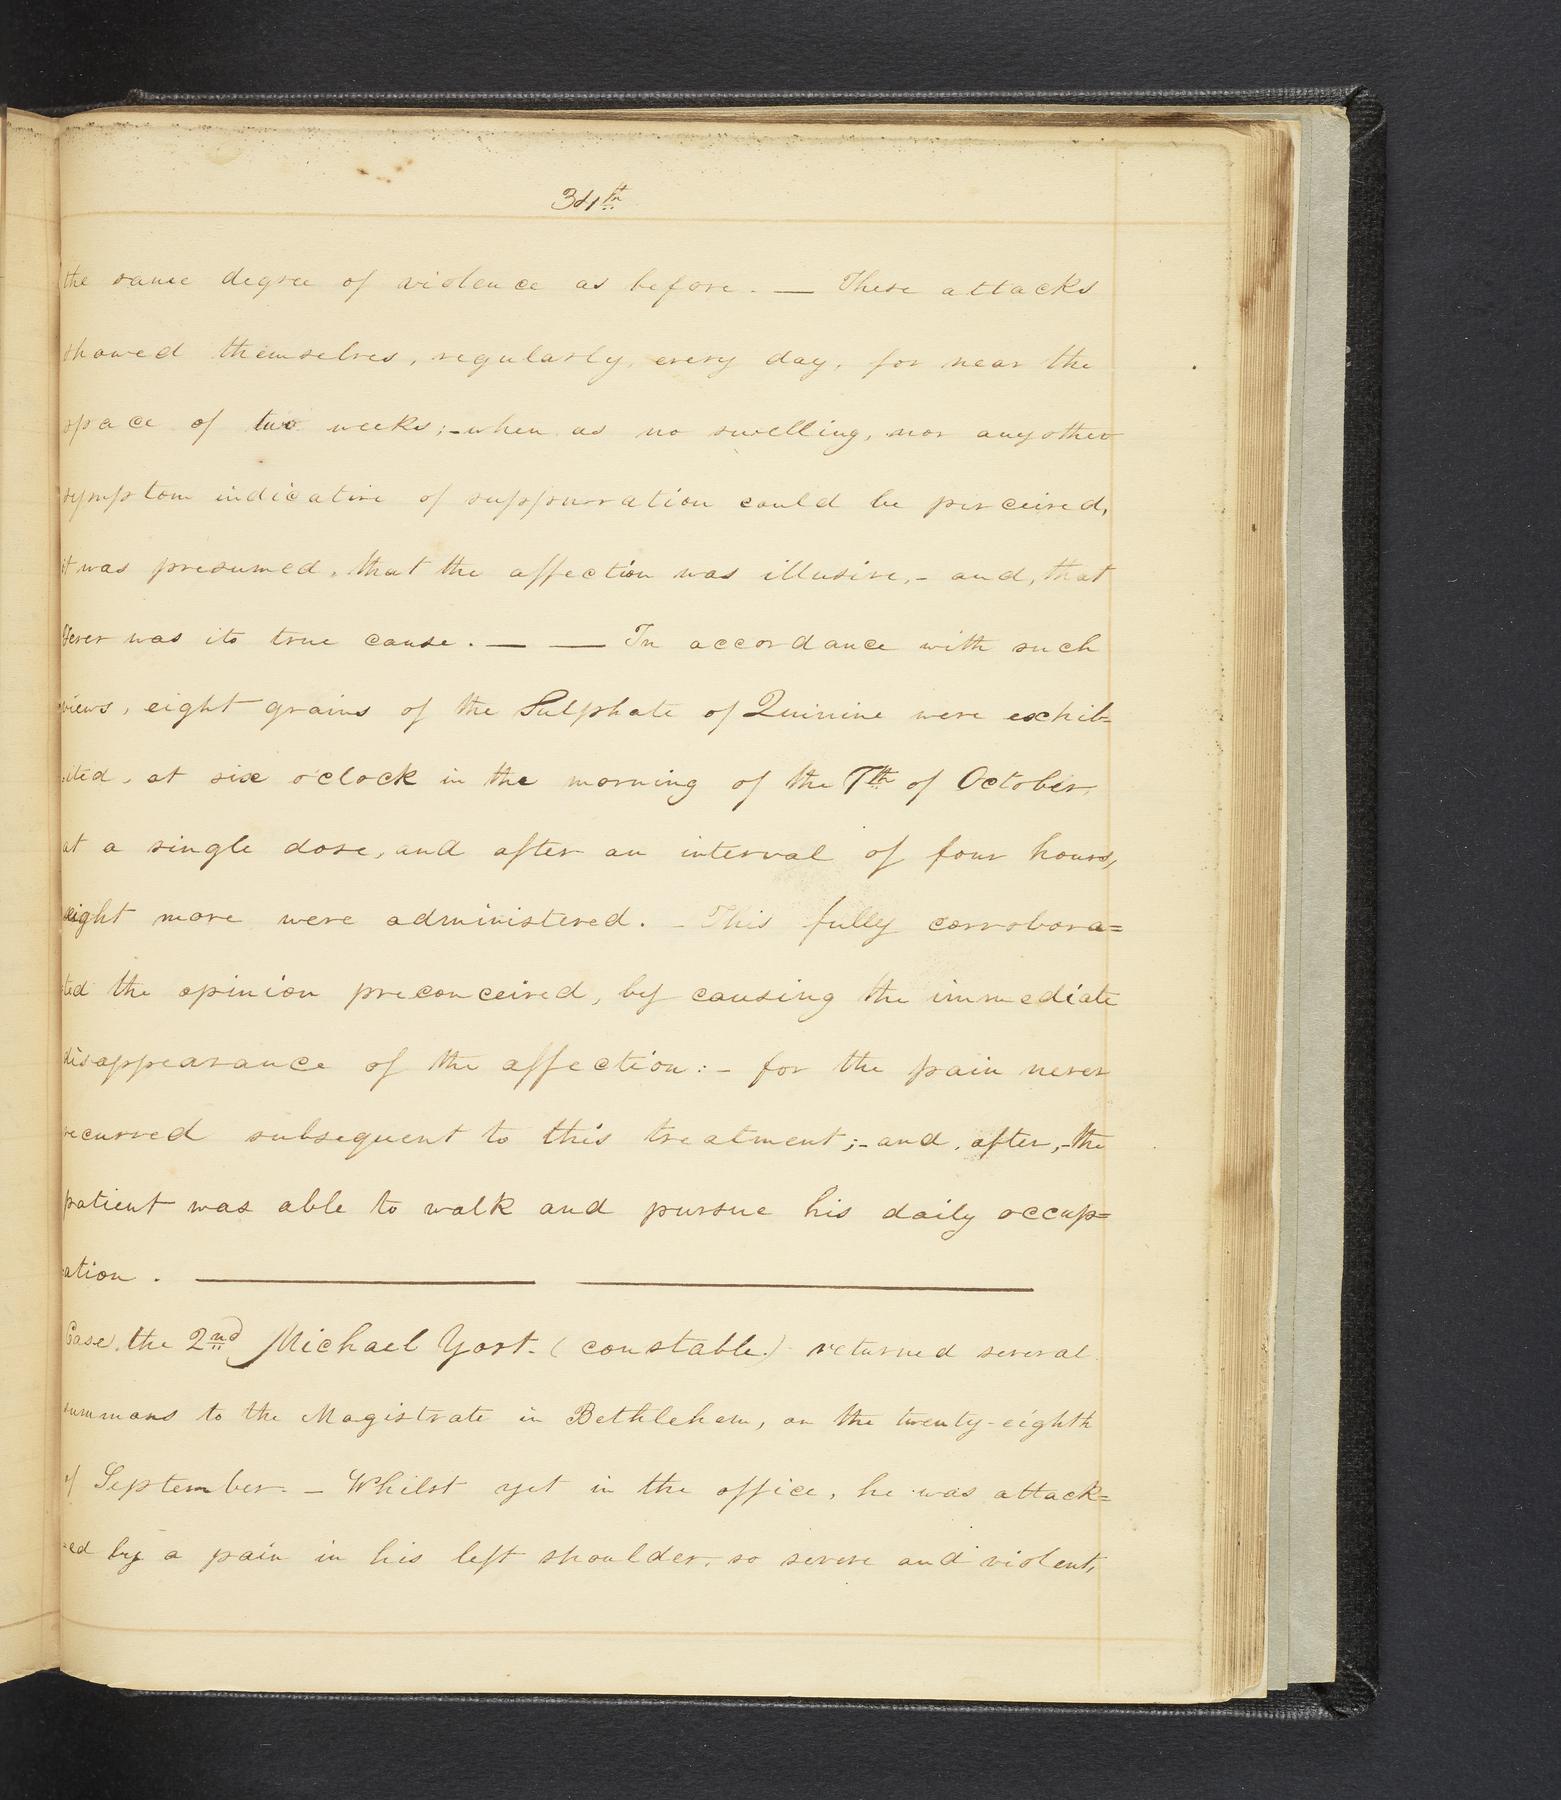 34th
the same degree of violence as before. — These attacks
showed themselves, regularly, every day, for near the
space of two weeks;- when as no swelling, nor any other
symptom indicative of suppurration could be perceived,
it was presumed, that the affection was illusive,- and, that
Fever was its true cause. — — In accordance with such
views, eight grains of the Sulphate of Quinine were exhib=
ited, at six o'clock in the morning of the 7th of October,
at a single dose, and after an interval of four hours,
eight more were administered. - This fully corrobora=
ted the opinion preconceived, by causing the immediate
disappearance of the affection:- for the pain never
recurred subsequent to this treatment;- and, after,- the
patient was able to walk and pursue his daily occup=
ation. — —
Case, the 2nd Michael Yost. (constable.) returned several
summons to the Magistrate in Bethlehem, on the twenty-eighth
of September. - Whilst yet in the office, he was attack=
ed by a pain in his left shoulder, so severe and violent,